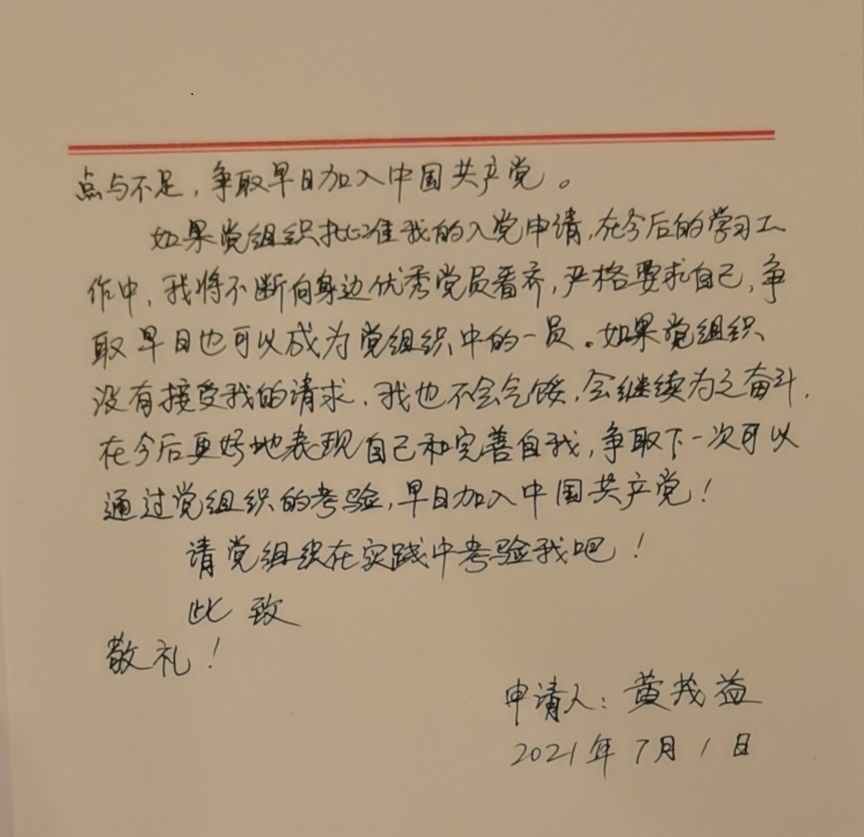 点与不足，争取早日加入中国共产党。
如果党组织批准我的入党申请，在今后的学习工
作中，我将不断向身边优秀党员看齐，严格要求自己，争
取早日也可以成为党组织中的一员。如果党组织
没有接受我的请求，我也不会气馁，会继续为之奋斗，
在今后更好地表现自己和完善自我，争取下一次可以
通过党组织的考验，早日加入中国共产党！
请党组织在实践中考验我吧！
此致
敬礼！
申请人：黄茂益
2021年7月1日